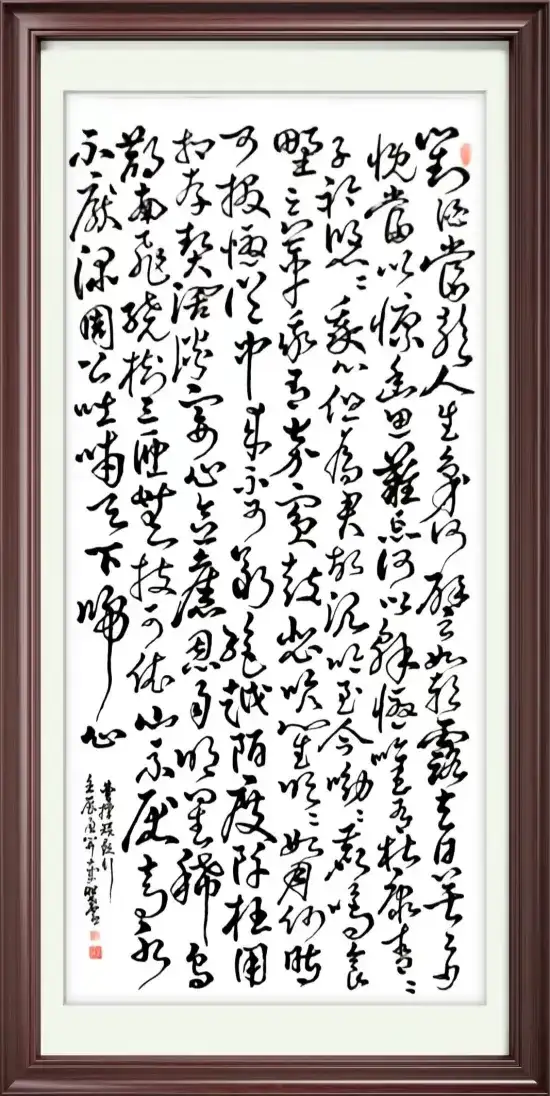 對酒當歌人生幾何譬如朝露去日苦多
慨當以慷憂思難忘何以解憂唯有杜康青々
子衿悠々我心但為君故沉吟至今呦々鹿鳴食
野之苹我有嘉賓鼓瑟吹笙明々如月何時
可掇憂從中來不可斷絕越陌度阡枉用
相存契闊談宴心念舊恩月明星稀烏
鵲南飛繞樹三匝無枝可依山不厭高水
不厭深周公吐哺天下歸心
曹操短歌行
壬辰